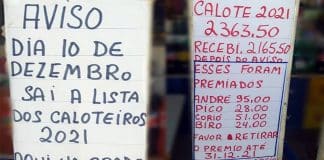 AVISO
DIA 10 DE
DEZEMBRO
SAI A LISTA
DOS CALOTEIROS
2021
CALOTE 2021
2363.50
RECEBI. 2165.50
DEPOIS DO AVISO
ESSES FORAM
PREMIADOS
ANDRÉ 95,00
PICO 28.00
CORIÓ 51.00
BIRO 24.00
FAVOR RETIRAR
O PREMIO ATÉ
31-12-21